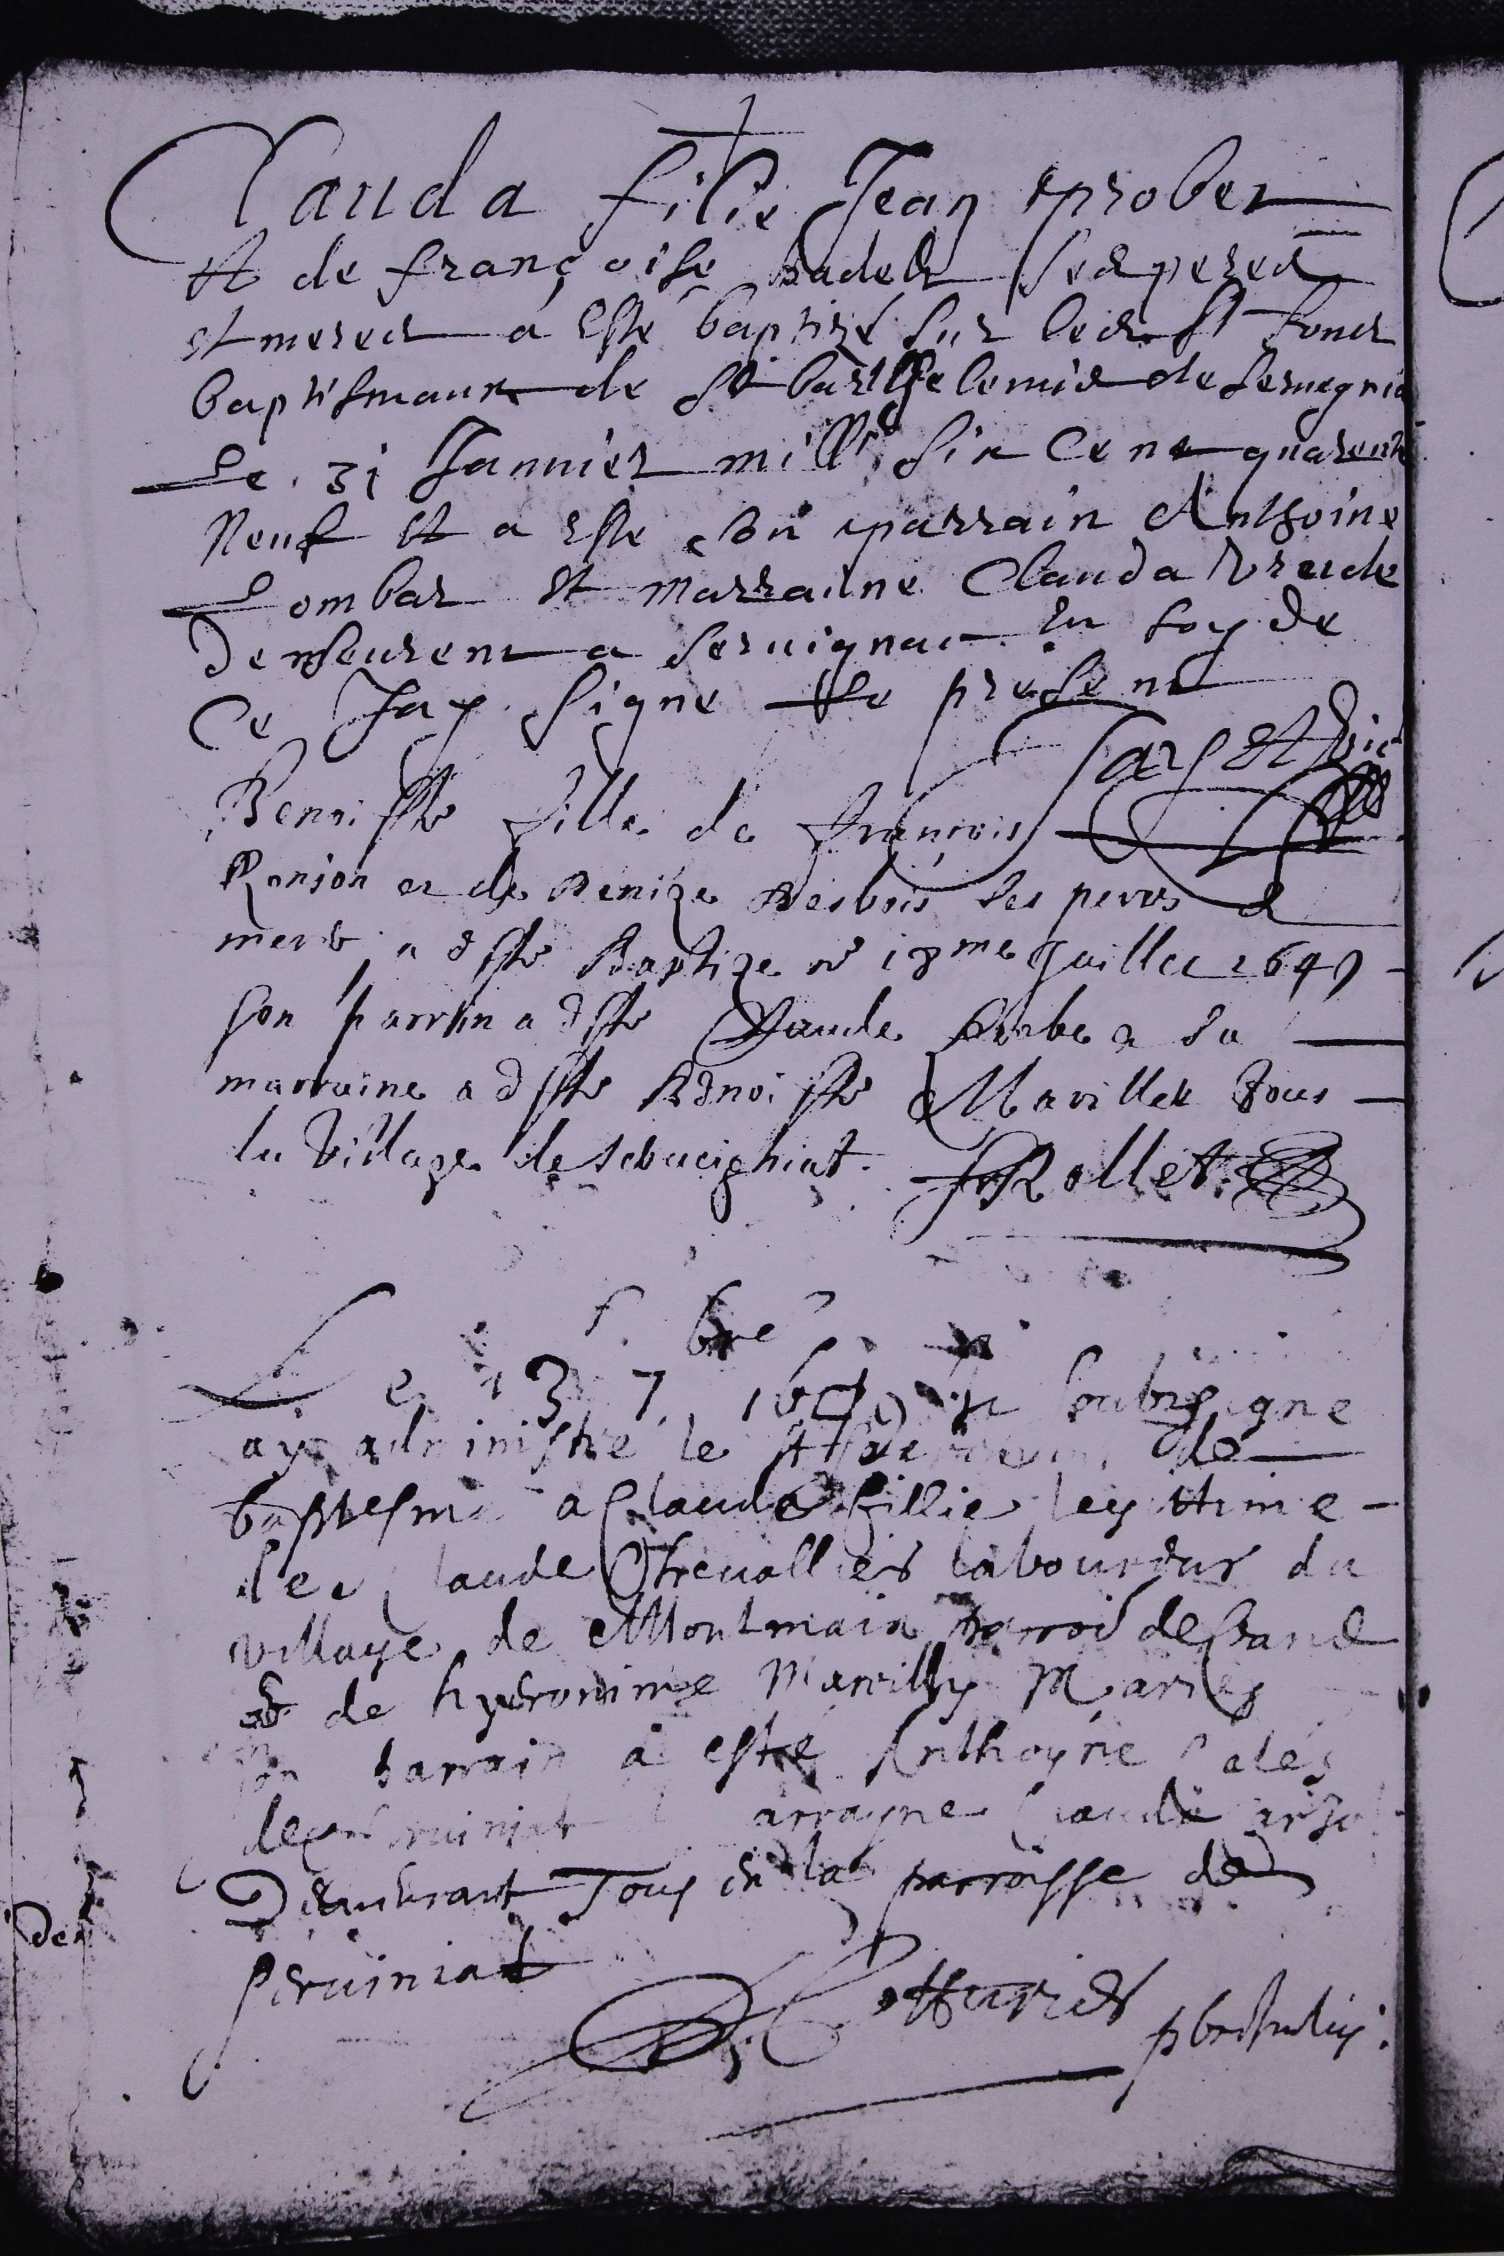 Clauda filie Jean probet
Et de françoise badet Ses peres
et meres a Esté baptizé sur les St fonds
baptismaux de St barthelemie de Seruegnia
Le 31 Januier mill Six Cent quarente
Neuf Et a Esté son parrain Anthoine
Lombar Et marraine Clauda
Demeurent a Seruignat En foy de
Ce Jay Signe Le present
Benoiste fille de françois
Ronjon et de Denize Desbois ses peres &
mere a Esté Baptize ce 18me Juillet 1649
son parrin a Esté Claude & sa
marraine a Esté Benoiste Marillet tous
du Village de Serueignat. Rollet
bre
Le 13 7 Je soubsigne
ay administré le St de
baptesme a Claude fillie legittime
de Claude Cheuallier laboureur du
village de Montmain parroi de
Et de hyeronime Mareilly Maries
son parrain a esté Anthoyne
de arragne Clauda
Demeurant Tous en la parroisse de
Seruiniat
De